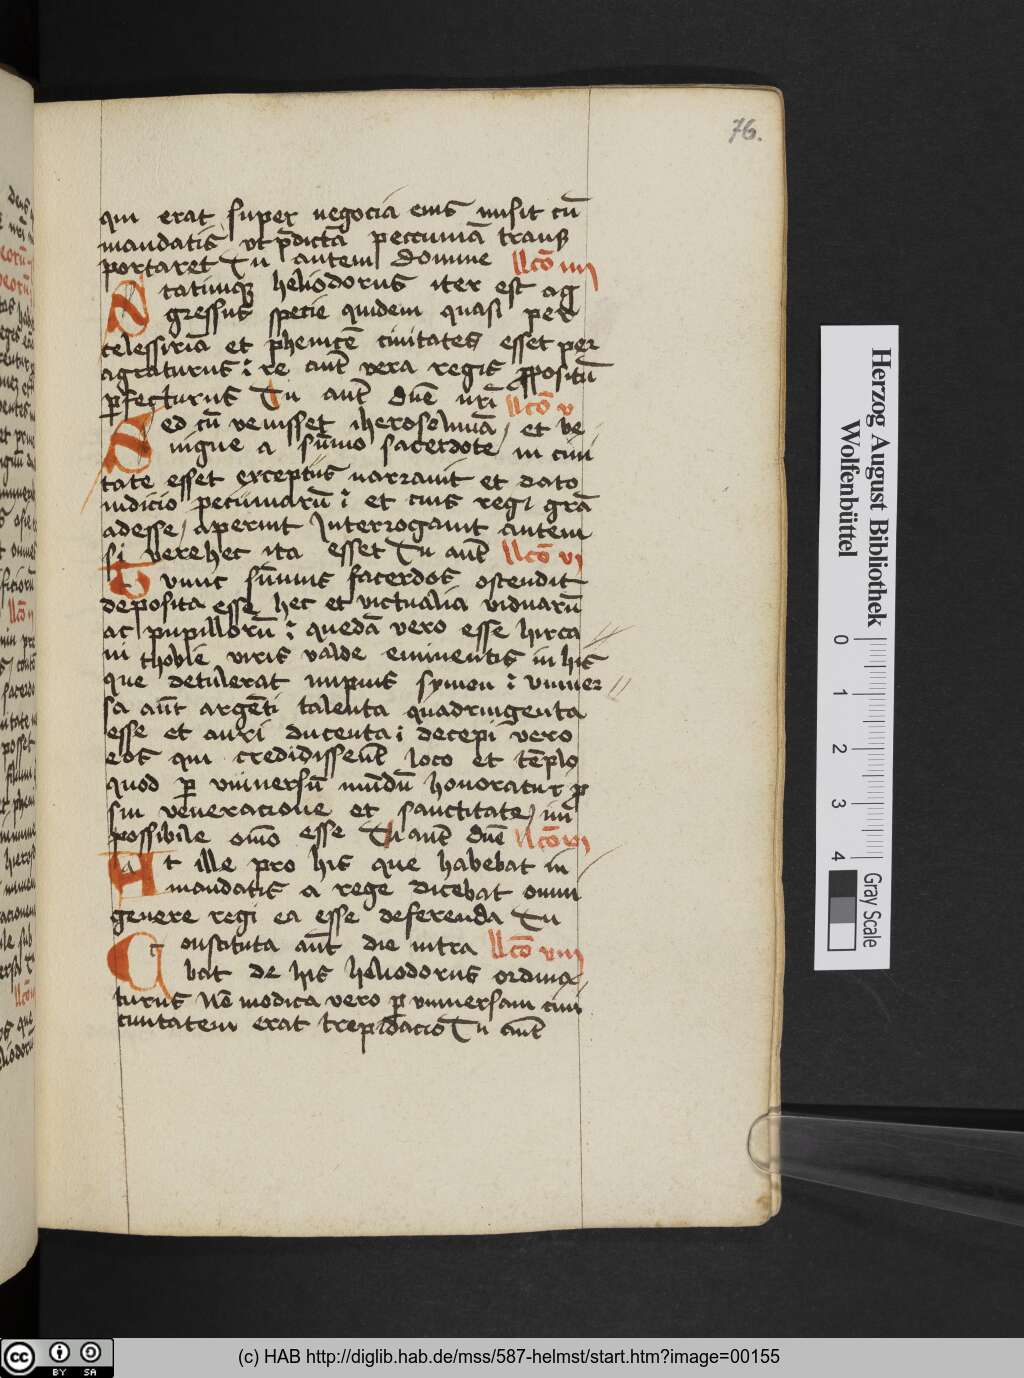 76.
qui erat super negocia eius misit cū
mandatis vt p̄dictā peccuniā trans
portaret Tu autem domine llcō iiii
Statimqꝫ heliodorus iter est ag
gressus specie quidem quasi per
celessiriā et phenicē ciuitates esset per
agraturus : re aut̄ vera regis ꝓpositū
ꝑfecturus Tu aut̄ dn̄e nr̄i llcō v
Sed cū venisset iherosolimā / et be
nigne a sūmo sacerdote in ciui
tate esset exceptus narrauit et dato
iudicio pecuniarū : et cuius regi grā
adesse / aperuit Interrogauit autem
si vere hec ita esset Tu aut̄ llcō vi
Tunc sūmus sacerdos ostendit
deposita esse hec et victualia viduarū
ac pupillorū : quedā vero esse hirca
ni thobie viris valde eminentis in his
que detulerat impius symon : vniuer
sa aūt argēti talenta quadringenta
esse et auri ducenta : decepi vero
eos qui credidissent loco et tēplo
quod ꝑ vniuersū mūdū honoratur ꝓ
sui veneracione et sanctitate / im
possibile om̄o esse Tu aut̄ dn̄e llcō vii
At ille pro his que habebat in
mandatis a rege dicebat omni
genere regi ea esse deferenda Tu
Constituta aūt die intra llcō viii
bat de his heliodorus ordina
turus Nō modica vero ꝑ vniuersam ciui
ciuitatem erat trepidacio Tu aut̄
Herzog August Bibliothek
Wolfenbüttel
0 1 2 3 4
Gray Scale
cc BY SA
(c) HAB http://diglib.hab.de/mss/587-helmst/start.htm?image=00155